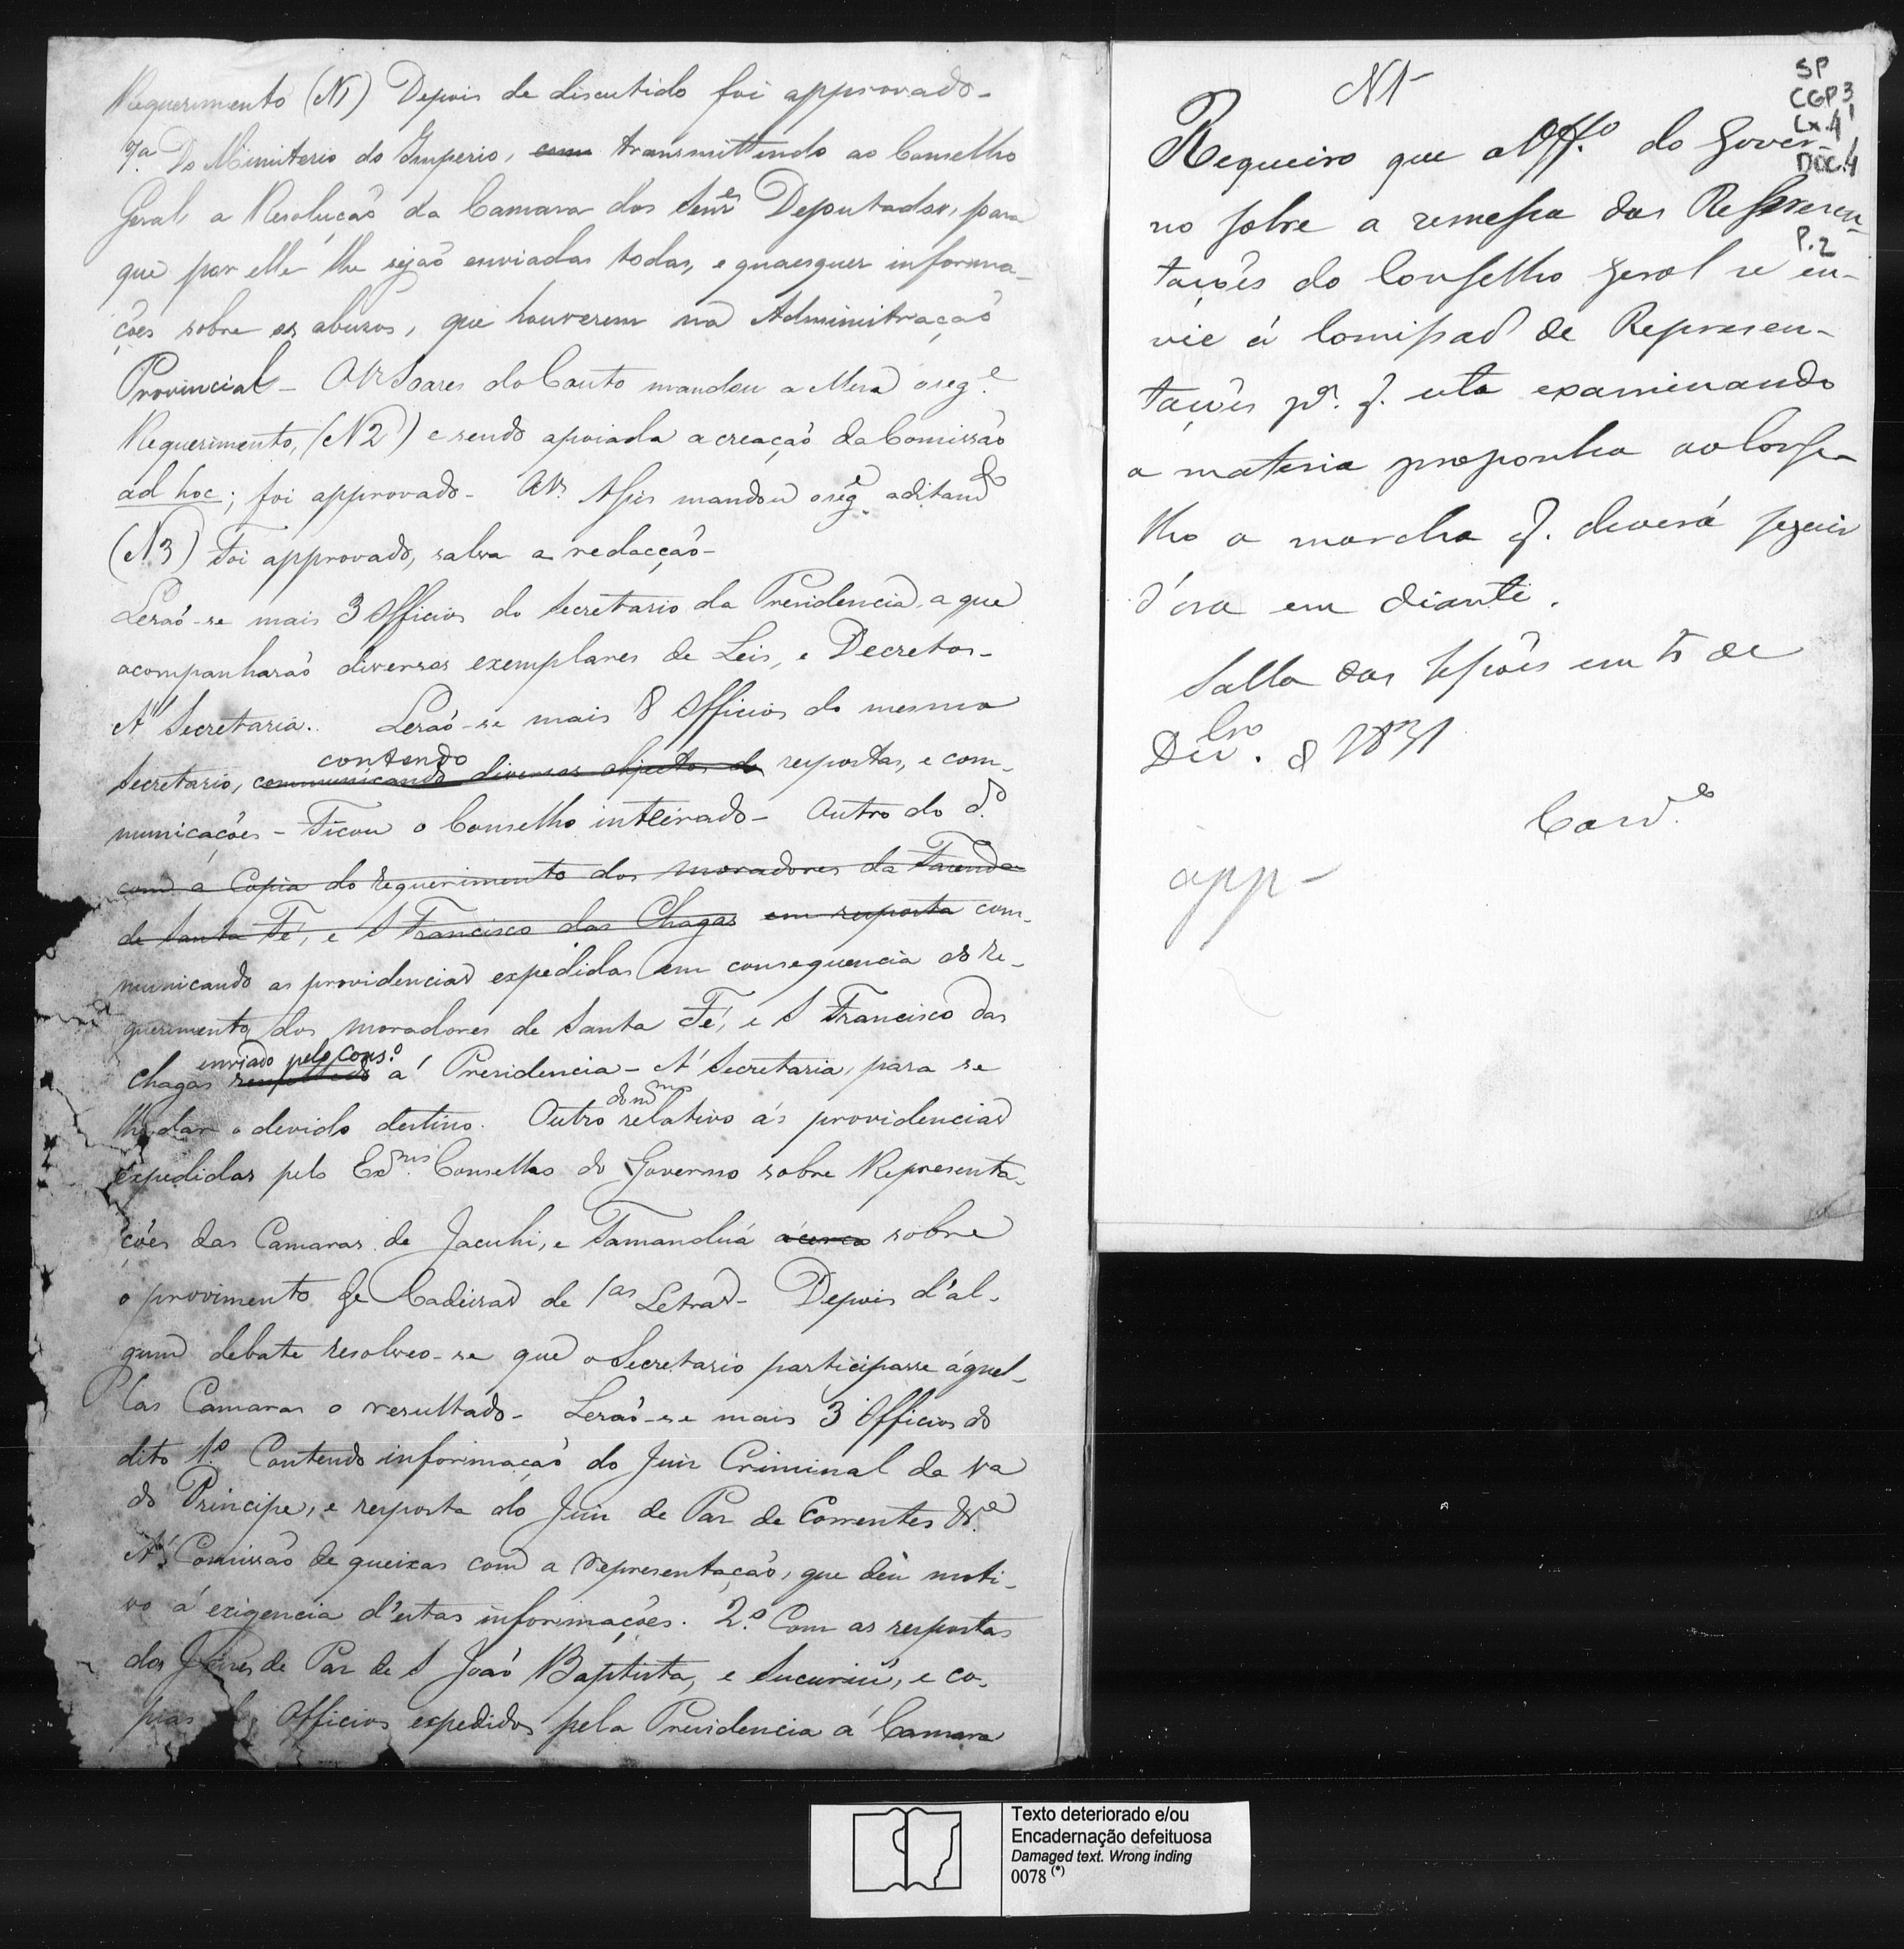 Requerimento (N1) Depois de discutido foi approvado-
7ª Do Ministerio do Imperio, com transmittindo ao Conselho
Geral a Resolução da Camara dos Senres Deputados, para
que por elle lhe sejaõ enviadas todas, e quaesquer informa-
ções sobre os abusos, que houverem na Administração
Provincial- O Sr Soares do Couto mandou a Mesa o sege
Requerimento, (N2) e sendo apoiada a creação da Comissão
ad hoc; foi approvado- O Sr. Assis mandou o sege aditamdo
(N3) Foi approvado, salva a redacção-
Leraõ-se mais 3 Officios do Secretario da Presidencia, a que
acompanharaõ diversos exemplares de Leis, e Decretos-
A' Secretaria. Leraõ-se mais 8 Officios do mesmo
contendo
Secretario, communicando diversos objectos de respostas, e com-
municações- Ficou o Conselho inteirado- Outro do do
com a Copia do requerimento dos moradores da Fazenda
de Santa Fé, e S Francisco das Chagas em resposta com-
municando as providencias expedidas em consequencia do re-
querimento dos moradores de Santa Fé, e S Francisco das
enviado pelo Conso
Chagas á Presidencia- A' Secretaria, para se
do mmo
lhe dar o devido destino. Outro relativo ás providencias
expedidas pelo Exmo Conselho do Governo sobre Representa-
ções das Camaras de Jacuhi, e Tamanduá ácerca sobre
o provimento de Cadeiras de 1as Letras- Depois d'al-
gum debate resolveo-se que o Secretario participasse áquel-
las Camaras o resultado- Leraõ-se mais 3 Officios do
dito 1º Contendo informação do Juiz Criminal da Va
do Principe, e resposta do Juiz de Paz de Correntes &e
A' Comissão de queixas com a representação, que deu moti-
vo á exigencia d'estas informações. 2º Com as respostas
dos Juizes de Paz de S João Baptista, e Sucuriú, e co-
pias Officios expedidos pela Presidencia á Camara
N1
SP
CGP3
Cx.4
DOC.4
P.2
Requeiro que o Offo do Gover-
no sobre a remessa das Represen-
tações do Conselho Geral se en-
vie á Comissaõ de Represen-
tações pa. q. esta examinando
a materia proponha ao Conse-
lho a marcha q. deverá seguir
d'ora em diante.
Salla das Sessões em 5 de
Dezbro. d 1831
Card.o
app-
Texto deteriorado e/ou
Encadernação defeituosa
Damaged text. Wrong inding
0078 (*)